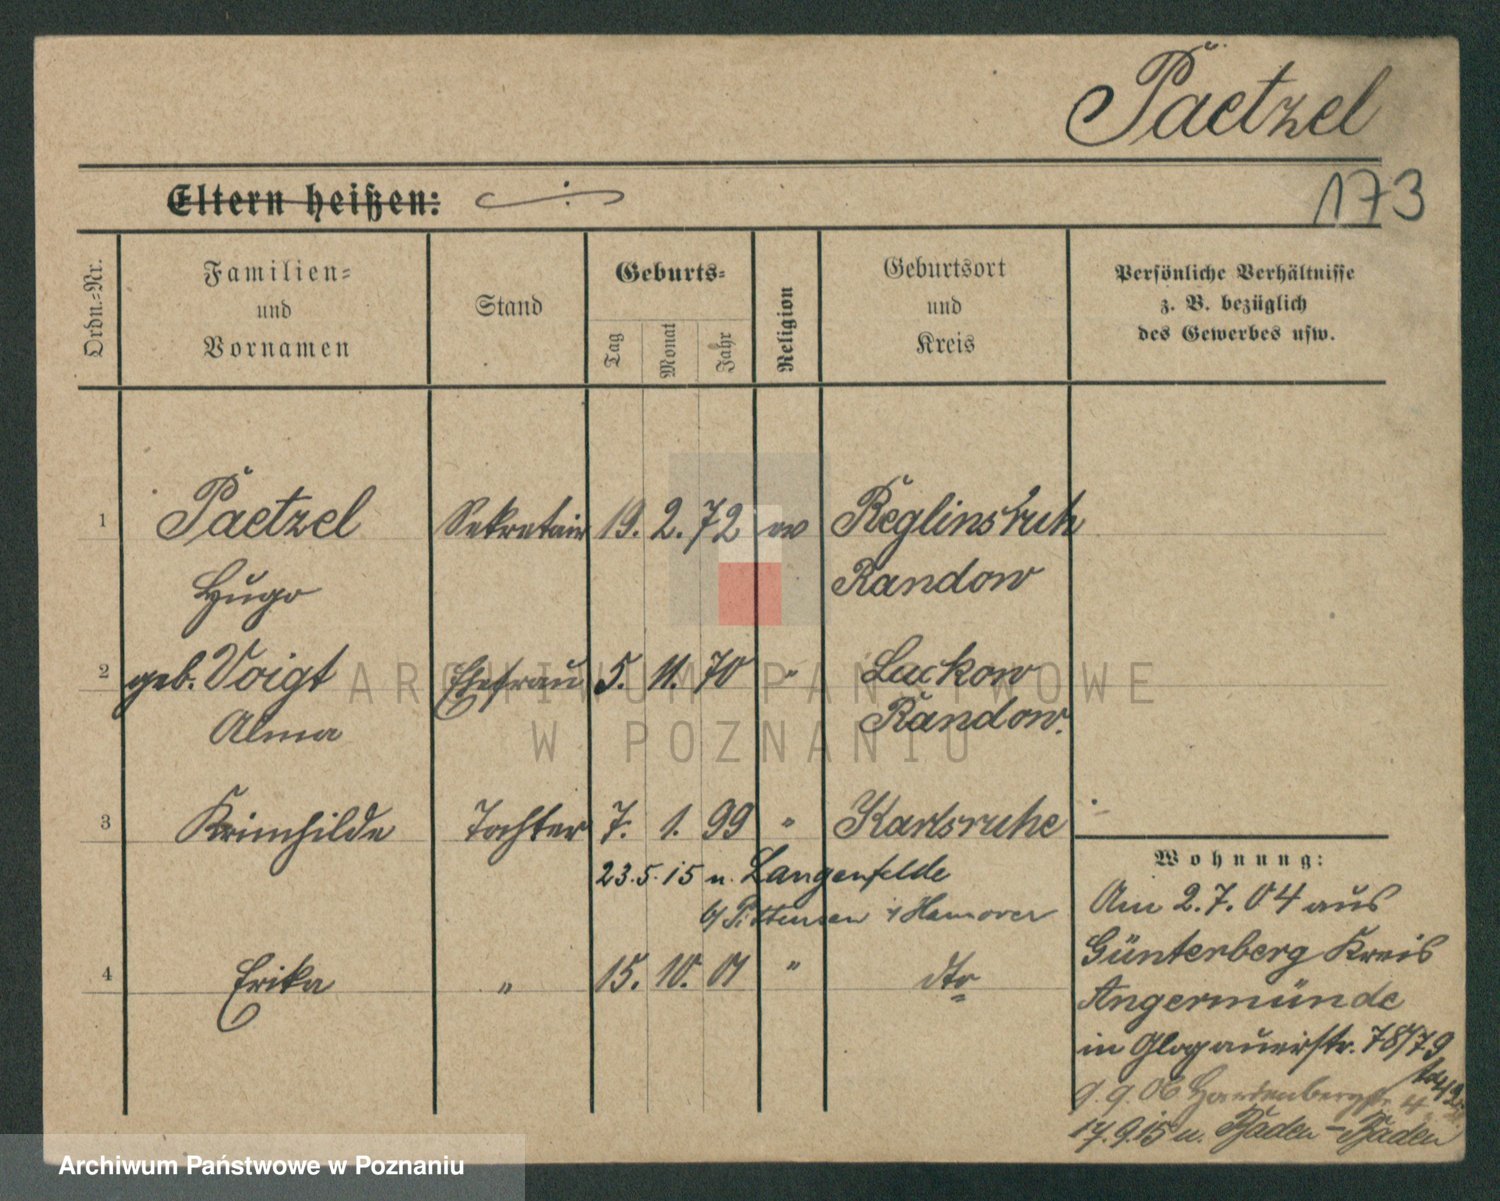 Paetzel
173
Eltern heißen:
Ordn.-Nr.
Familien-
und
Vornamen
Stand
Geburts-
Tag
Monat
Jahr
Religion
Geburtsort
und
Kreis
Persönliche Verhältnisse
z. B. bezüglich
des Gewerbes usw.
1 Paetzel Sekretair 19. 2. 72 ev Reglinsruh
Hugo Randow
2 geb. Voigt Ehefrau 5. 11. 70 " Lackow
Alma Randow.
3 Krimhilde Tochter 7. 1. 99 " Karlsruhe
23.5.15 n. Langenfelde
Hannover
4 Erika " 15. 10. 01 " dto
Wohnung:
Am 2.7.04 aus
Günterberg Kreis
Angermünde
in Glogauerstr. 78/79
9.9.06 Hardenbergstr. 4
17.9.15 n. Baden-Baden
ARCHIWUM PAŃSTWOWE
W POZNANIU
Archiwum Państwowe w Poznaniu